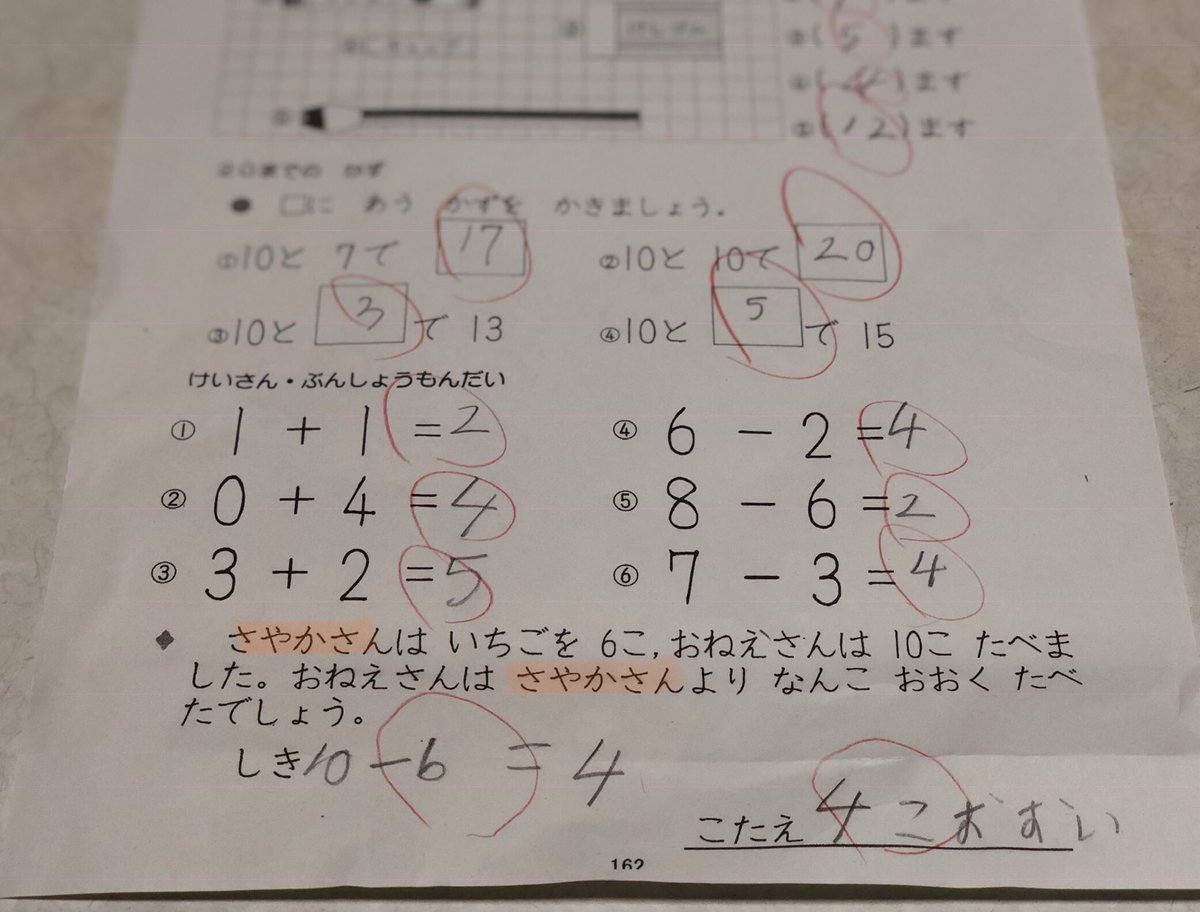 ③(5)ます
④(4)ます
⑤(12)ます
20までの かず
● □に あう かずを かきましょう。
①10と 7で 17 ②10と 10で 20
③10と 3 で 13 ④10と 5 で 15
けいさん・ぶんしょうもんだい
① 1 + 1 =2 ④ 6 - 2 =4
② 0 + 4 =4 ⑤ 8 - 6 =2
③ 3 + 2 =5 ⑥ 7 - 3 =4
◆ さやかさんは いちごを 6こ,おねえさんは 10こ たべま
した。おねえさんは さやかさんより なんこ おおく たべ
たでしょう。
しき10-6=4
こたえ 4こ
162